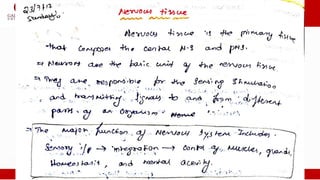 23/7/17
Nervous tissue
Nervous tissue is the primary tissue
that composes the central N.S and PNS.
⇒ Neurons are the basic unit of the nervous tissue
⇒ They are responsible for the sensing stimulation
and transmitting signals to and from different
parts of an organism
⇒ The Major function of Nervous System Includes.
Sensory i/p → integration → Control of Muscles, glands,
Homeostasis, and mental activity.